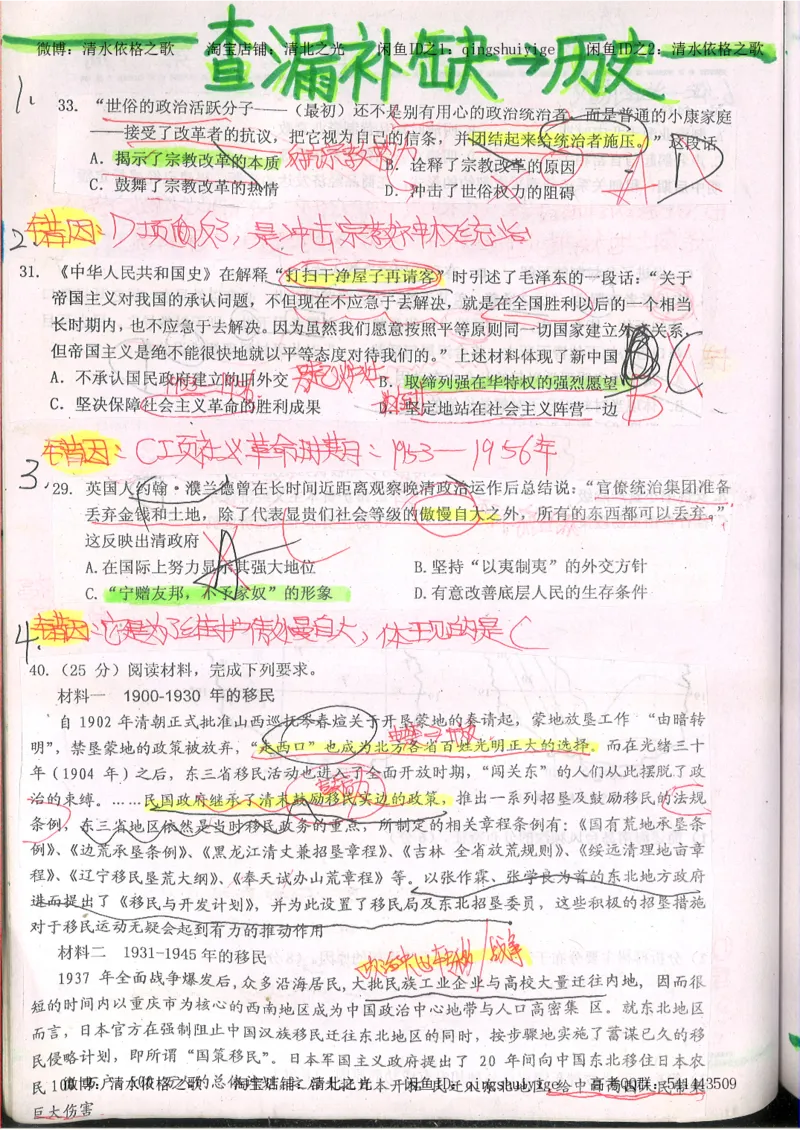 查漏补缺→历史
微博：清水依格之歌 淘宝店铺：清北之光 闲鱼ID之1：qingshuiyige 闲鱼ID之2：清水依格之歌
1.
33. “世俗的政治活跃分子——（最初）还不是别有用心的政治统治者，而是普通的小康家庭
——接受了改革者的抗议，把它视为自己的信条，并团结起来给统治者施压。”这段话
A. 揭示了宗教改革的本质 B. 诠释了宗教改革的原因
C. 鼓舞了宗教改革的热情 D. 冲击了世俗权力的阻碍
D
错因：D项
2.
31. 《中华人民共和国史》在解释“打扫干净屋子再请客”时引述了毛泽东的一段话：“关于
帝国主义对我国的承认问题，不但现在不应急于去解决，就是在全国胜利以后的一个相当
长时期内，也不应急于去解决。因为虽然我们愿意按照平等原则同一切国家建立外交关系，
但帝国主义是绝不能很快地就以平等态度对待我们的。”上述材料体现了新中国
A. 不承认国民政府建立的旧外交 B. 取缔列强在华特权的强烈愿望
C. 坚决保障社会主义革命的胜利成果 D. 坚定地站在社会主义阵营一边
错因：C项社会主义革命时期：1953—1956年
3.
29. 英国人约翰·濮兰德曾在长时间近距离观察晚清政治运作后总结说：“官僚统治集团准备
丢弃金钱和土地，除了代表显贵们社会等级的傲慢自大之外，所有的东西都可以丢弃。”
这反映出清政府
A. 在国际上努力显示其强大地位 B. 坚持“以夷制夷”的外交方针
C. “宁赠友邦，不予家奴”的形象 D. 有意改善底层人民的生存条件
错因：它是为了维护傲慢自大，体现的是C
4.
40. （25 分）阅读材料，完成下列要求。
材料一 1900-1930 年的移民
自 1902 年清朝正式批准山西巡抚岑春煊关于开垦蒙地的奏请起，蒙地放垦工作 “由暗转
明”，禁垦蒙地的政策被放弃，“走西口”也成为北方各省百姓光明正大的选择。而在光绪三十
年（1904 年）之后，东三省移民活动也进入了全面开放时期，“闯关东”的人们从此摆脱了政
治的束缚。……民国政府继承了清末鼓励移民实边的政策，推出一系列招垦及鼓励移民的法规
条例，东三省地区依然是当时移民政务的重点，所制定的相关章程条例有：《国有荒地承垦条
例》、《边荒承垦条例》、《黑龙江清丈兼招垦章程》、《吉林 全省放荒规则》、《绥远清理地亩章
程》、《辽宁移民垦荒大纲》、《奉天试办山荒章程》等。以张作霖、张学良为首的东北地方政府
进而提出了《移民与开发计划》，并为此设置了移民局及东北招垦委员，这些积极的招垦措施
对于移民运动无疑会起到有力的推动作用
材料二 1931-1945 年的移民
政治中心转移/战争
1937 年全面战争爆发后，众多沿海居民，大批民族工业企业与高校大量迁往内地，因而很
短的时间内以重庆市为核心的西南地区成为中国政治中心地带与人口高密集 区。就东北地区
而言，日本官方在强制阻止中国汉族移民迁往东北地区的同时，按步骤地实施了蓄谋已久的移
民侵略计划，即所谓“国策移民”。日本军国主义政府提出了 20 年间向中国东北移住日本农
微博：清水依格之歌 淘宝店铺：清北之光 闲鱼ID：qingshuiyige 高考QQ群：541443509
巨大伤害